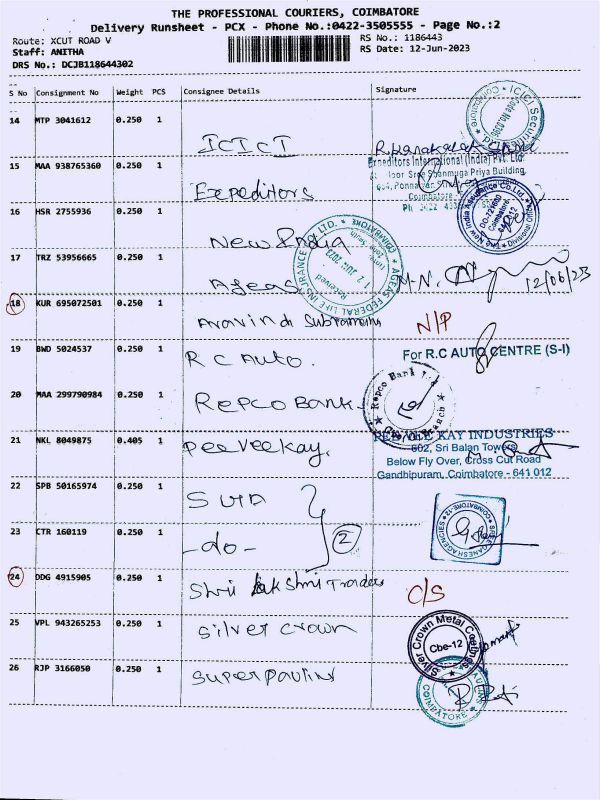 THE PROFESSIONAL COURIERS, COIMBATORE
Delivery Runsheet - PCX - Phone No.:0422-3505555 - Page No.:2
Route: XCUT ROAD V
Staff: ANITHA
DRS No.: DCJB118644302
RS No.: 1186443
RS Date: 12-Jun-2023
S No Consignment No Weight PCS Consignee Details Signature
14 MTP 3041612 0.250 1 ICICI
15 MAA 938765360 0.250 1 Expeditors
Expeditors International (India) Pvt. Ltd.
Floor Sree Shanmuga Priya Building,
Coimbatore
16 HSR 2755936 0.250 1 New India
New India Assurance Co. Ltd.
Divisional Office
Coimbatore
17 TRZ 53956665 0.250 1 Ageas
AGEAS FEDERAL LIFE INSURANCE CO LTD. COIMBATORE
Received
12 JUN 2023
12/06/23
18 KUR 695072501 0.250 1 Aravind Subramani N/P
19 BWD 5024537 0.250 1 R C Auto. For R.C AUTO CENTRE (S-I)
20 MAA 299790984 0.250 1 Repco Bank
Repco Bank Ltd
21 NKL 8049875 0.405 1 Peeveekay.
PEE VEE KAY INDUSTRIES
602, Sri Balan Towers
Below Fly Over, Cross Cut Road
Gandhipuram, Coimbatore - 641 012
22 SPB 50165974 0.250 1
23 CTR 160119 0.250 1 -do- 2
SREE GANESH AGENCIES COIMBATORE-12
24 DDG 4915905 0.250 1 Shri Lakshmi Traders C/S
25 VPL 943265253 0.250 1 Silver Crown
Silver Crown Metal Coatings
Cbe-12
26 RJP 3166050 0.250 1
COIMBATORE